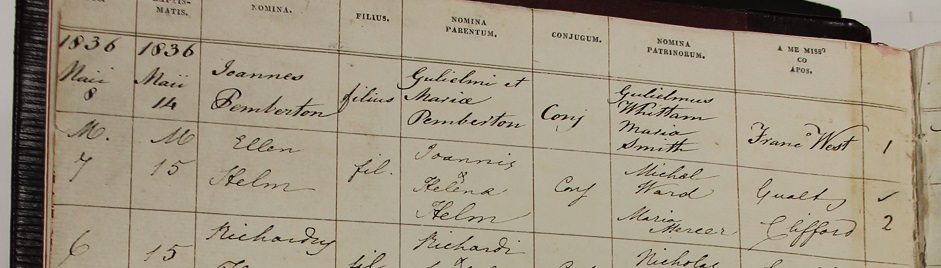 BAPTIS-
MATIS.
NOMINA.
FILIUS.
NOMINA
PARENTUM.
CONJUGUM.
NOMINA
PATRINORUM.
A ME MISSº
CO
APOS.
1836
Maii
8
1836
Maii
14
Joannes
Pemberton
filius
Gulielmi et
Mariæ
Pemberton
Conj
Gulielmus
Whittam
Maria
Smith
Franc West
1
M.
7
M
15
Ellen
Helm
fil.
Joannis
&
Helenæ
Helm
Conj
Michal
Ward
Maria
Mercer
Gualt
Clifford
2
6
15
Richardus
fil
Richardi
&
Nicholas